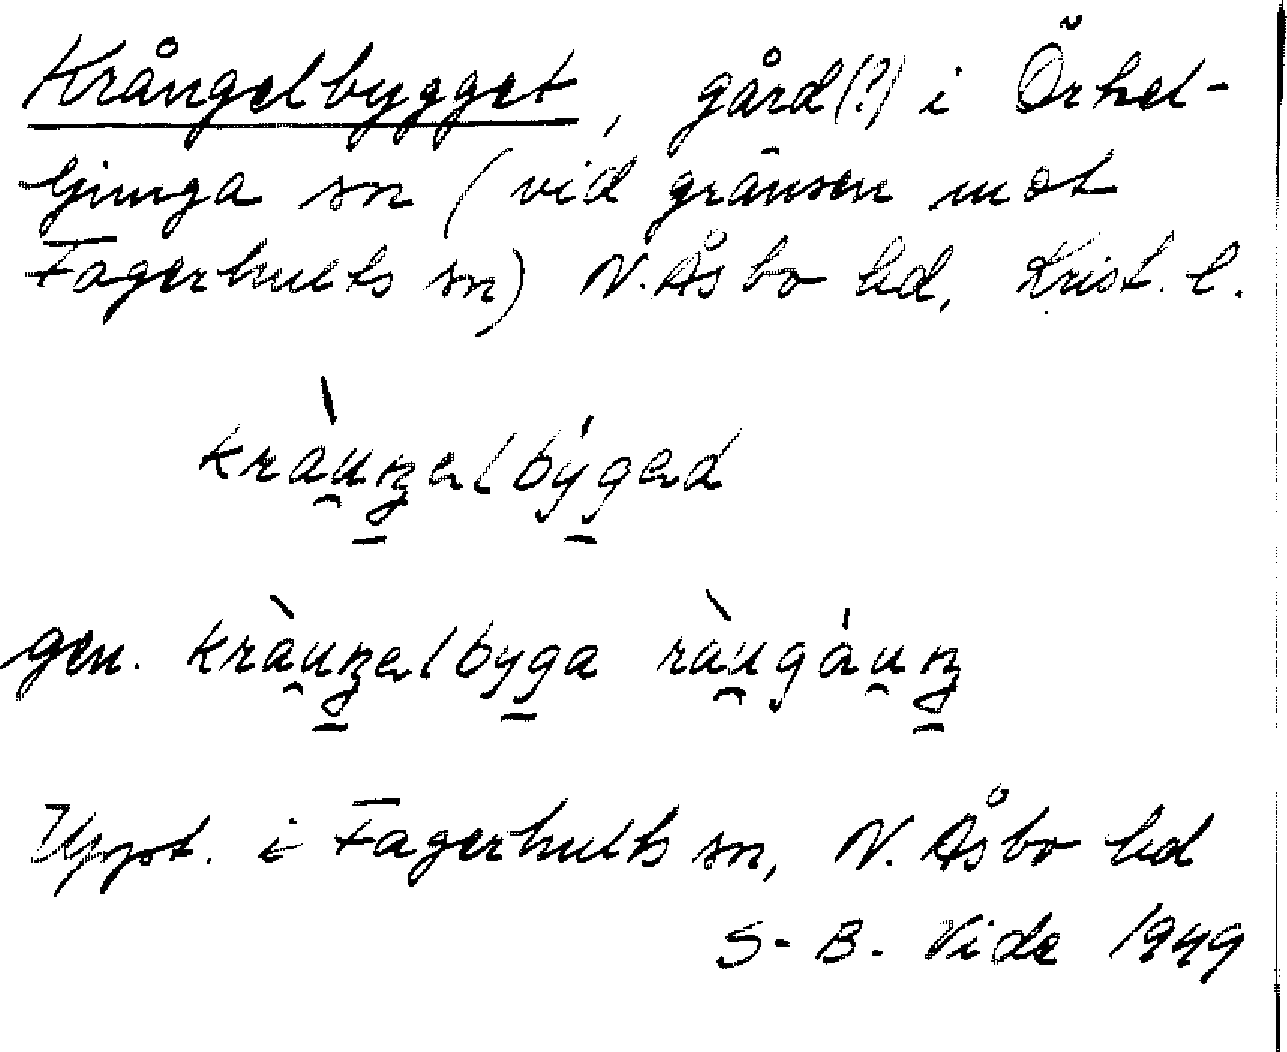 Krångelbygget, gård(?) i Örkel-
ljunga sn (vid gränsen mot
Fagerhults sn) N. Åsbo hd, Krist. l.
kràu̯ŋəlbýgəd
gen. kràu̯ŋəlbyga ràu̯gáu̯ŋ
Uppt. i Fagerhults sn, N. Åsbo hd
S.-B. Vide 1949